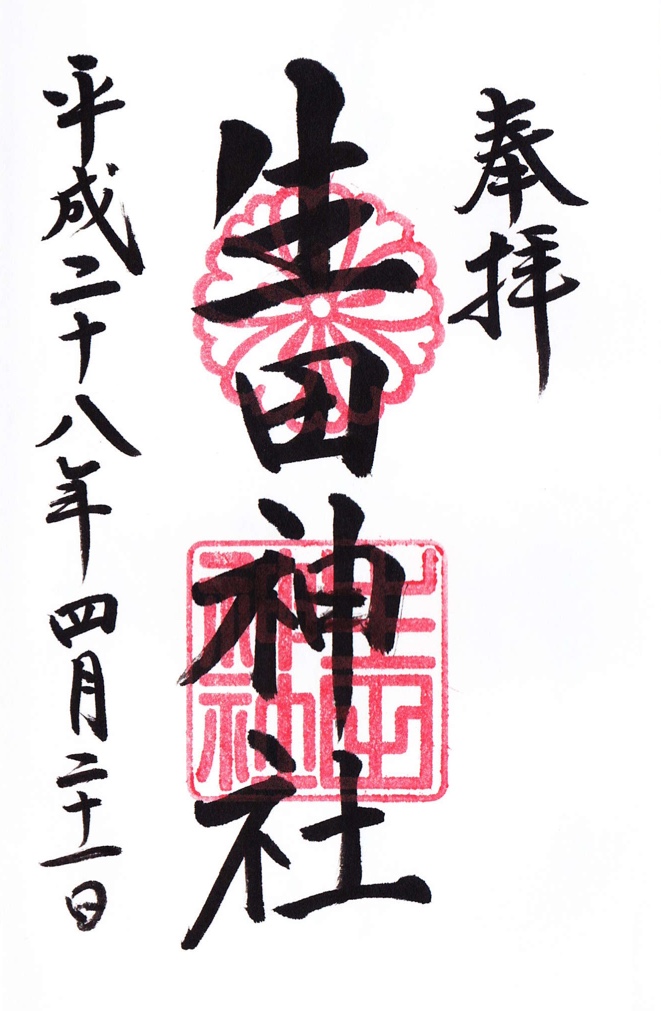 奉拝
生田神社
生田神社
平成二十八年四月二十一日